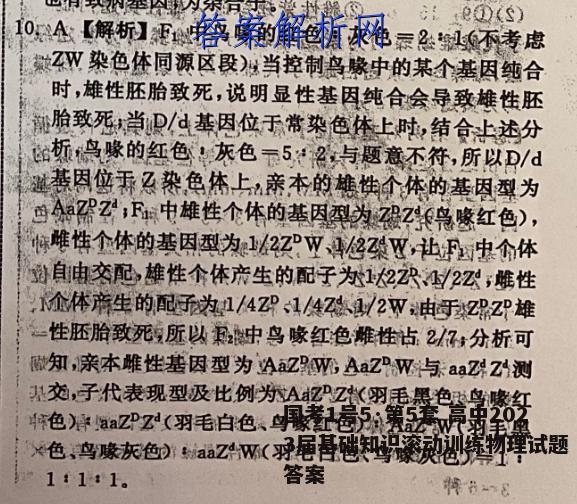 也有致病基因,为杂合子。
10. A 【解析】F₁中鸟喙的红色:灰色=2:1(不考虑
答案解析网
ZW染色体同源区段),当控制鸟喙中的某个基因纯合
时,雄性胚胎致死,说明显性基因纯合会导致雄性胚
胎致死;当D/d基因位于常染色体上时,结合上述分
析,鸟喙的红色:灰色=5:2,与题意不符,所以D/d
基因位于Z染色体上,亲本的雄性个体的基因型为
AaZᴰZᵈ;F₁中雄性个体的基因型为ZᴰZᵈ(鸟喙红色),
雌性个体的基因型为1/2ZᴰW、1/2ZᵈW,让F₁中个体
自由交配,雄性个体产生的配子为1/2Zᴰ、1/2Zᵈ,雌性
个体产生的配子为1/4Zᴰ、1/4Zᵈ、1/2W,由于ZᴰZᴰ雄
性胚胎致死,所以F₂中鸟喙红色雌性占2/7;分析可
知,亲本雌性基因型为AaZᴰW,AaZᴰW与aaZᵈZᵈ测
交,子代表现型及比例为AaZᴰZᵈ(羽毛黑色、鸟喙红
色):aaZᴰZᵈ(羽毛白色、鸟喙红色):AaZᵈW(羽毛黑
色、鸟喙灰色):aaZᵈW(羽毛白色、鸟喙灰色)=1:
1:1:1。
国考1号5·第5套·高中202
3届基础知识滚动训练物理试题
答案